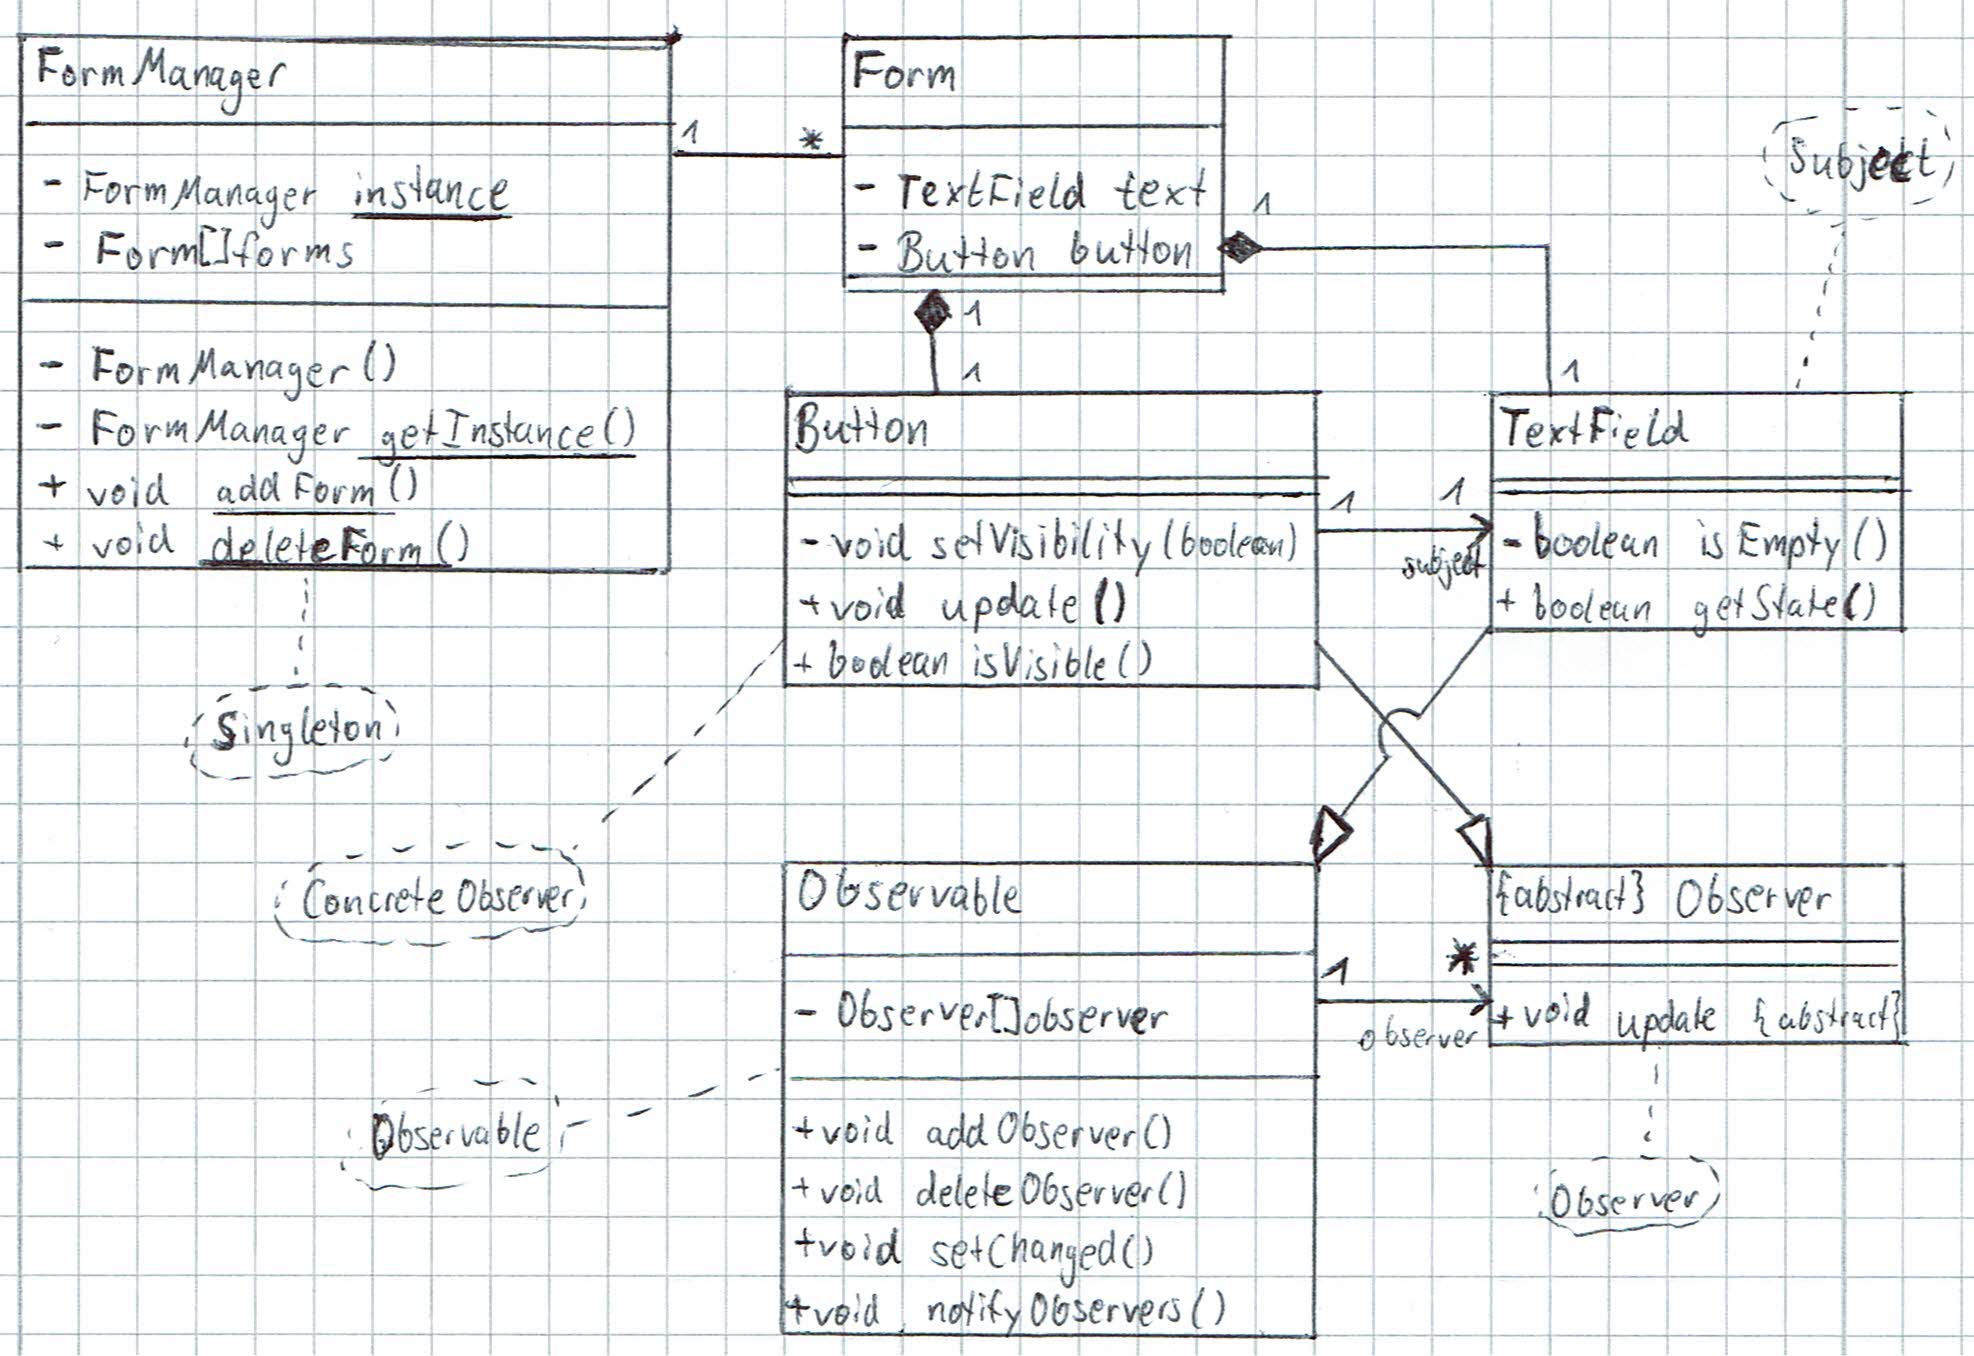 FormManager
- FormManager instance
- Form[]forms
- FormManager()
- FormManager getInstance()
+ void addForm()
+ void deleteForm()
Singleton
1
*
Form
- TextField text
- Button button
1
1
1
1
Subject
Button
- void setVisibility(boolean)
+ void update()
+ boolean isVisible()
1
1
subject
TextField
- boolean isEmpty()
+ boolean getState()
Concrete Observer
Observable
- Observer[]observer
+ void addObserver()
+ void deleteObserver()
+ void setChanged()
+ void notifyObservers()
1
*
observer
{abstract} Observer
+ void update {abstract}
Observable
Observer